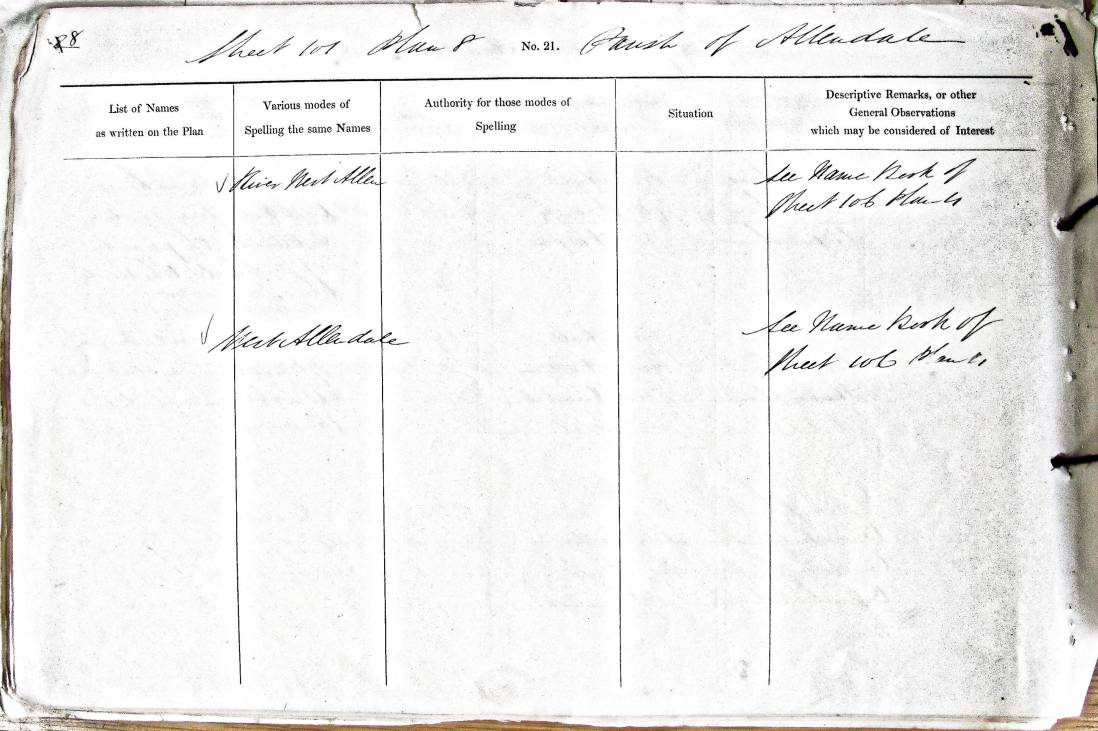 88
Sheet 101 Plan 8 No. 21. Parish of Allendale
List of Names
as written on the Plan
Various modes of
Spelling the same Names
Authority for those modes of
Spelling
Situation
Descriptive Remarks, or other
General Observations
which may be considered of Interest
River West Allen
See Name Book of
Sheet 106 Plan
West Allendale
See Name Book of
Sheet 106 Plan